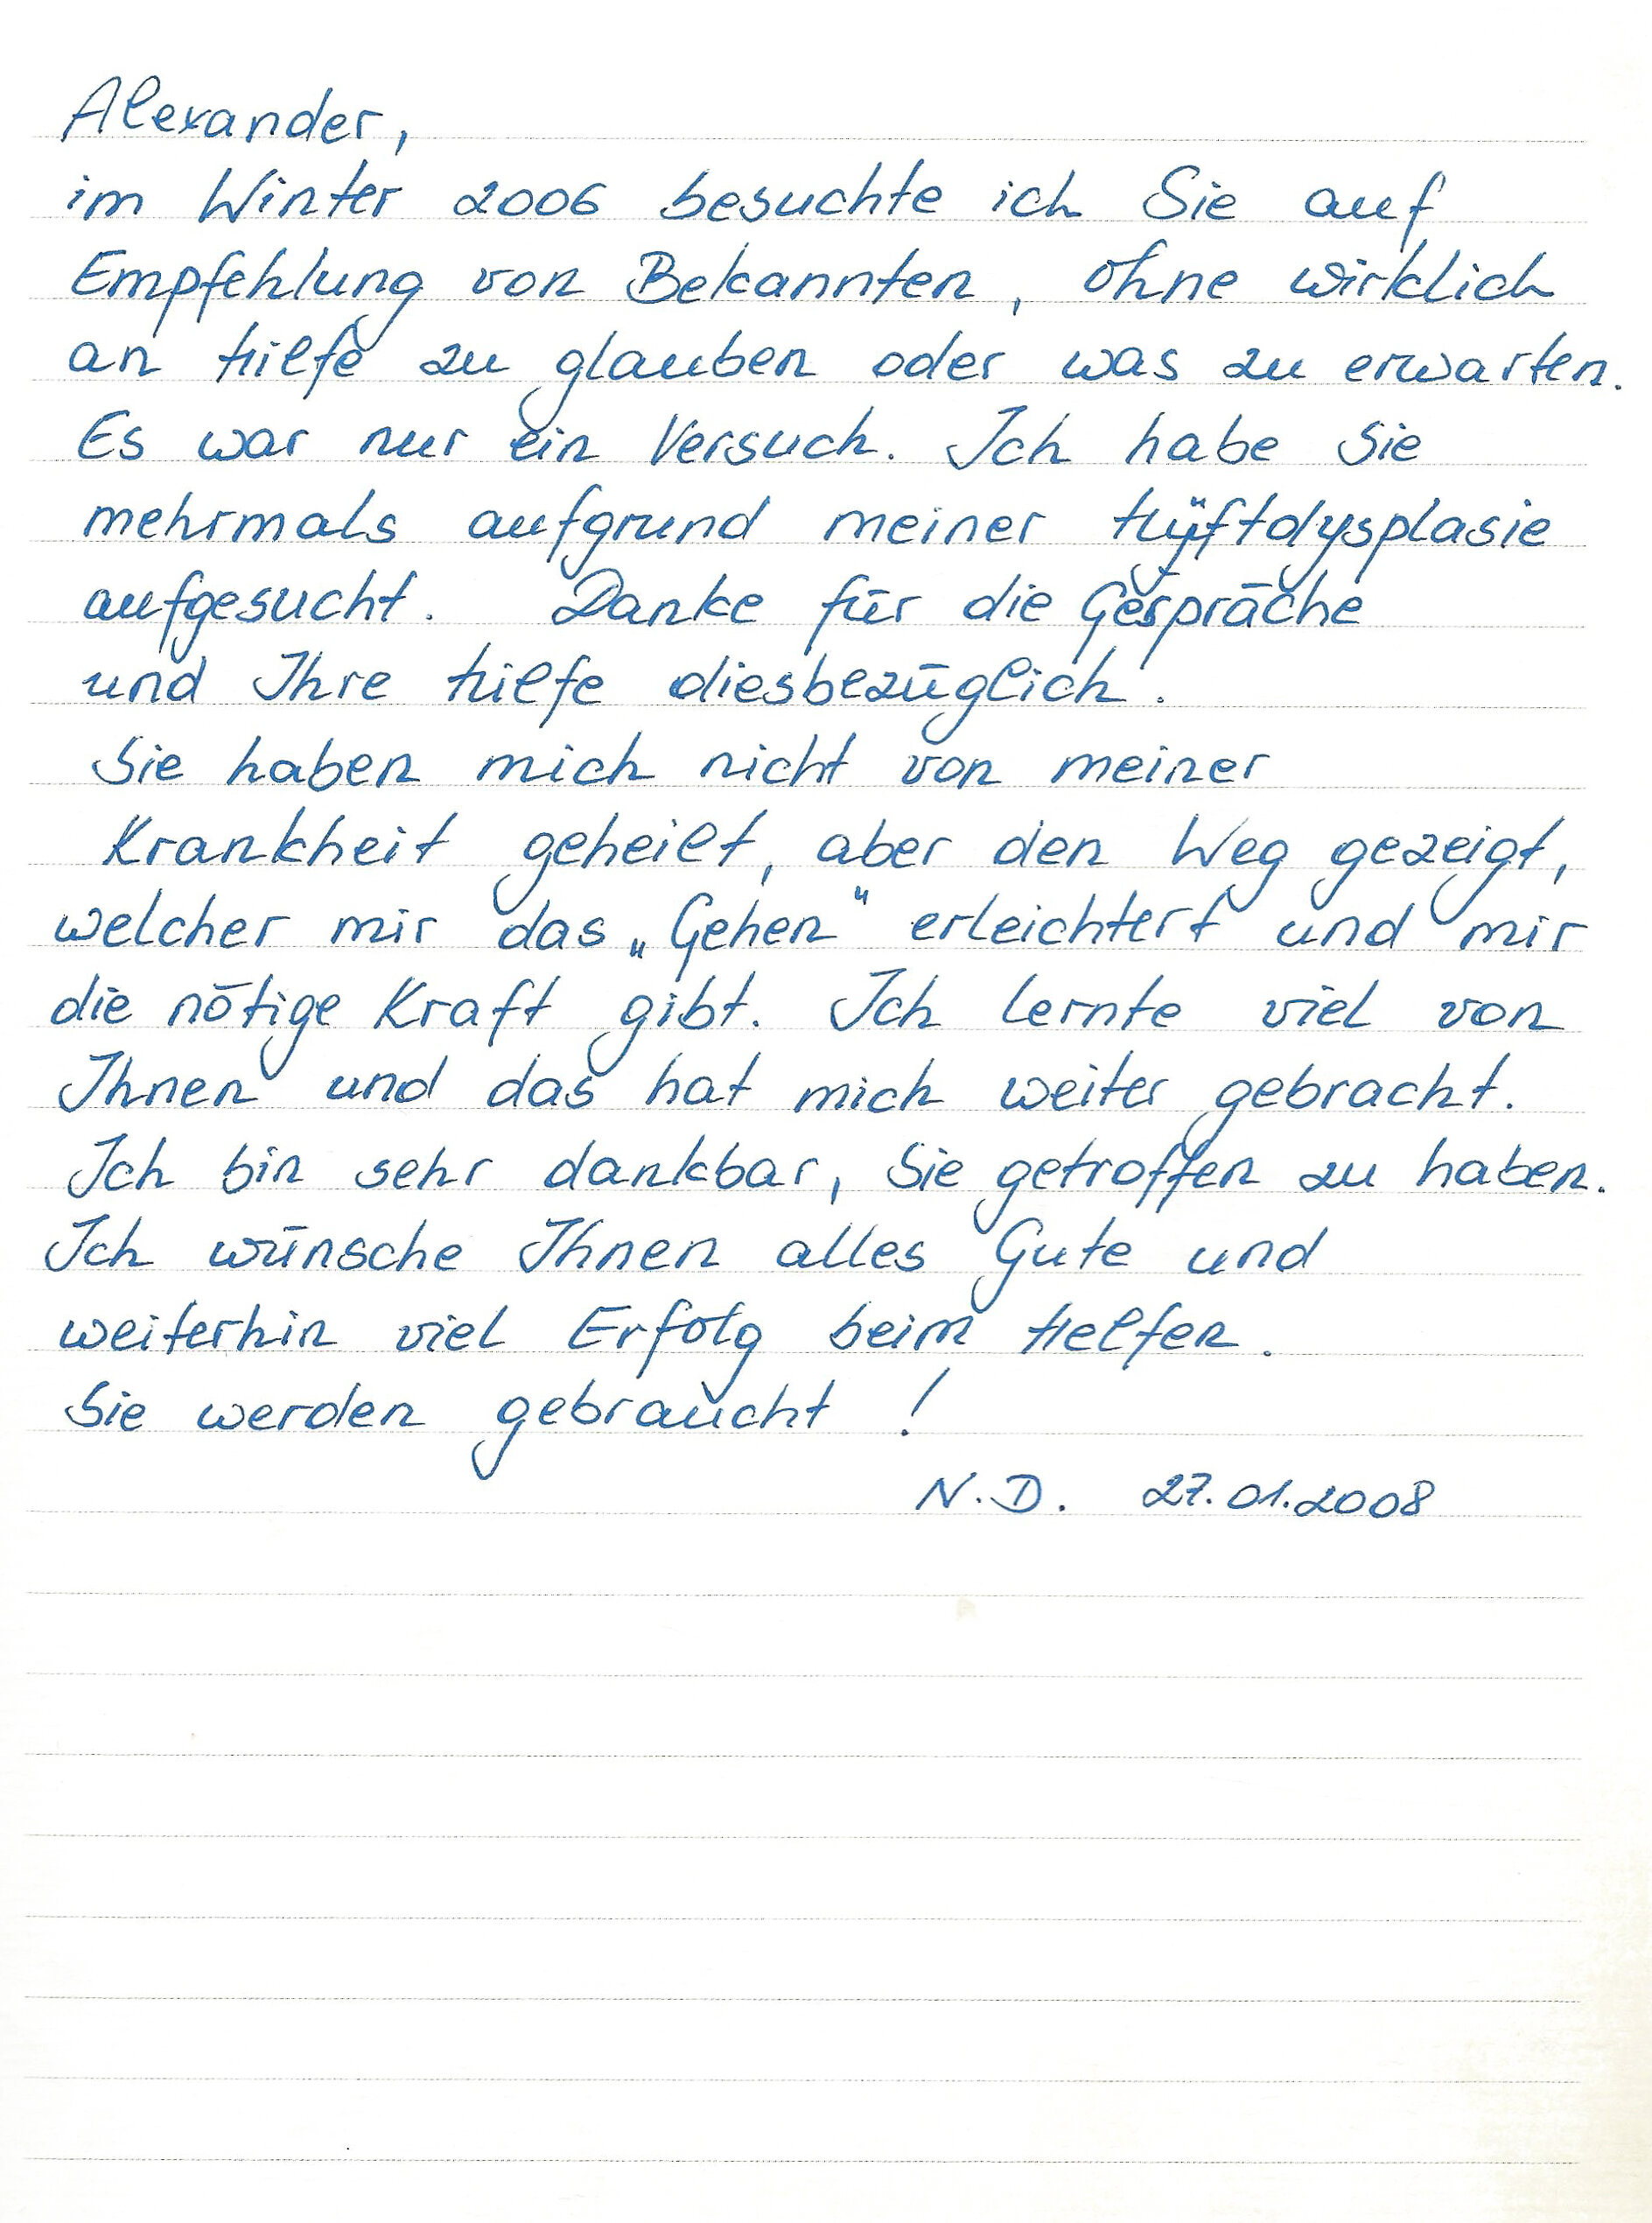 Alexander,
im Winter 2006 besuchte ich Sie auf
Empfehlung von Bekannten, ohne wirklich
an Hilfe zu glauben oder was zu erwarten.
Es war nur ein Versuch. Ich habe Sie
mehrmals aufgrund meiner Hüftdysplasie
aufgesucht. Danke für die Gespräche
und Ihre Hilfe diesbezüglich.
Sie haben mich nicht von meiner
Krankheit geheilt, aber den Weg gezeigt,
welcher mir das „Gehen" erleichtert und mir
die nötige Kraft gibt. Ich lernte viel von
Ihnen und das hat mich weiter gebracht.
Ich bin sehr dankbar, Sie getroffen zu haben.
Ich wünsche Ihnen alles Gute und
weiterhin viel Erfolg beim Helfen.
Sie werden gebraucht!
N.D. 27.01.2008